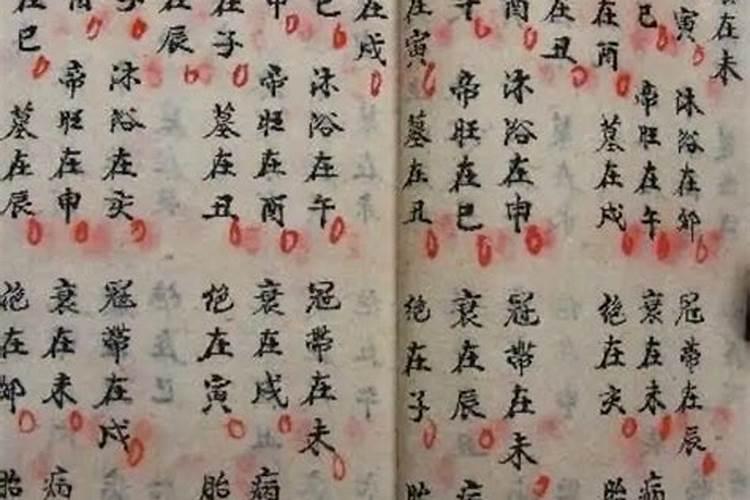 在未
寅
巳
在酉
在丑
酉
午
在寅
沐浴在卯
帝旺在午
墓在戌
沐浴在申
帝旺在巳
墓在丑
冠帶在辰
衰在未
絕在亥
冠帶在未
衰在辰
絕在子
病
胎
病
胎
在戌
巳
申
在子
在辰
子
在巳
沐浴在午
帝旺在酉
墓在丑
沐浴在亥
帝旺在申
墓在辰
冠帶在未
衰在戌
絕在寅
冠帶在戌
衰在未
絕在卯
病
胎
病
胎